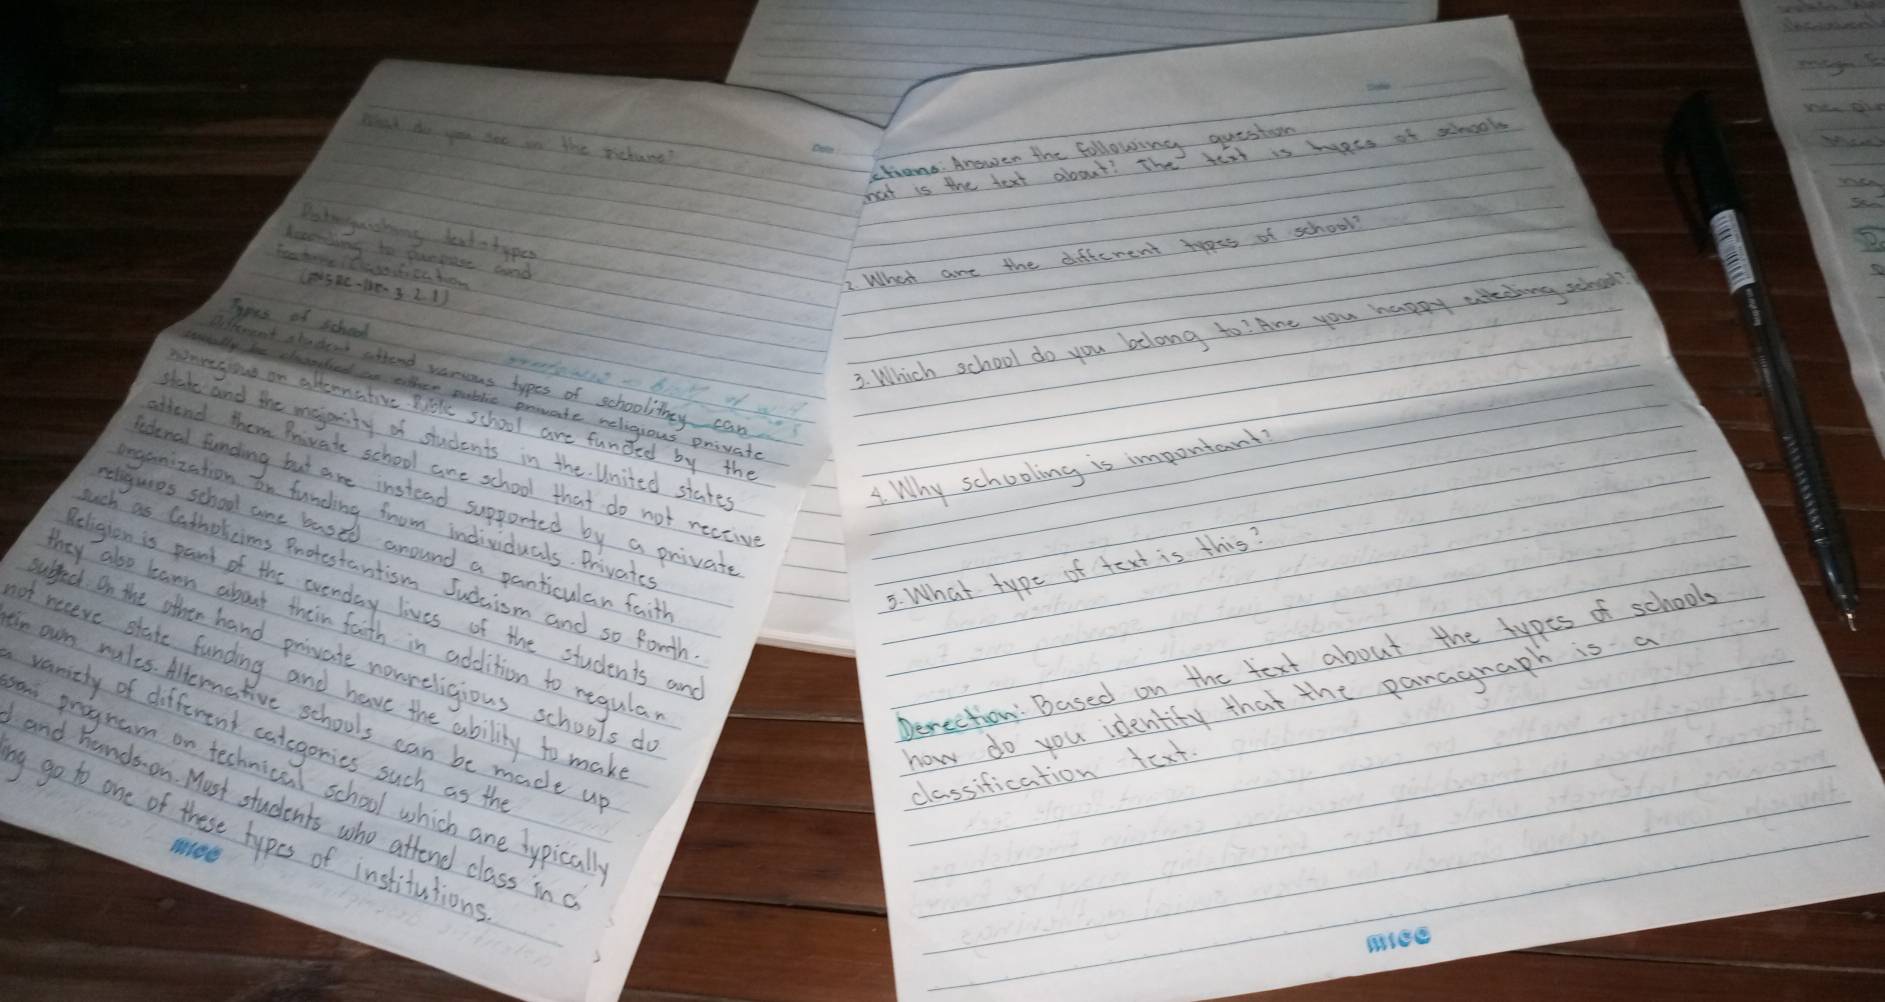 What do you see in the picture?
Distinguishing text-types
According to purpose and
features: classification
Types of school
Different student attend various types of school; they can
usually be classified as either public private religious private
nonregious or alternative. Public school are funded by the
state and the majority of students in the United states
attend them. Private school are school that do not receive
federal funding but are instead supported by a private
organization or funding from individuals. Privates
religuios school are based around a particular faith
such as Catholicims Protestantism Judaism and so forth.
Religion is part of the evenday lives of the students and
they also learn about their faith in addition to regular
subject. On the other hand private nonreligious schools do
not receve state funding and have the ability to make
their own rules. Alternative schools can be made up
variety of different categories such as the
program or technical school which are typically
and hands-on. Most students who attend class in a
go to one of these types of institutions.
mico
Date
Date
ctions: Answer the following question
hat is the text about? The text is types of schools
2. What are the different types of school?
3. Which school do you belong to? Are you happy school?
4. Why schooling is important?
5. What type of text is this?
Derection: Based on the text about the types of schools
how do you identify that the paragraph is a
classification text.
mico